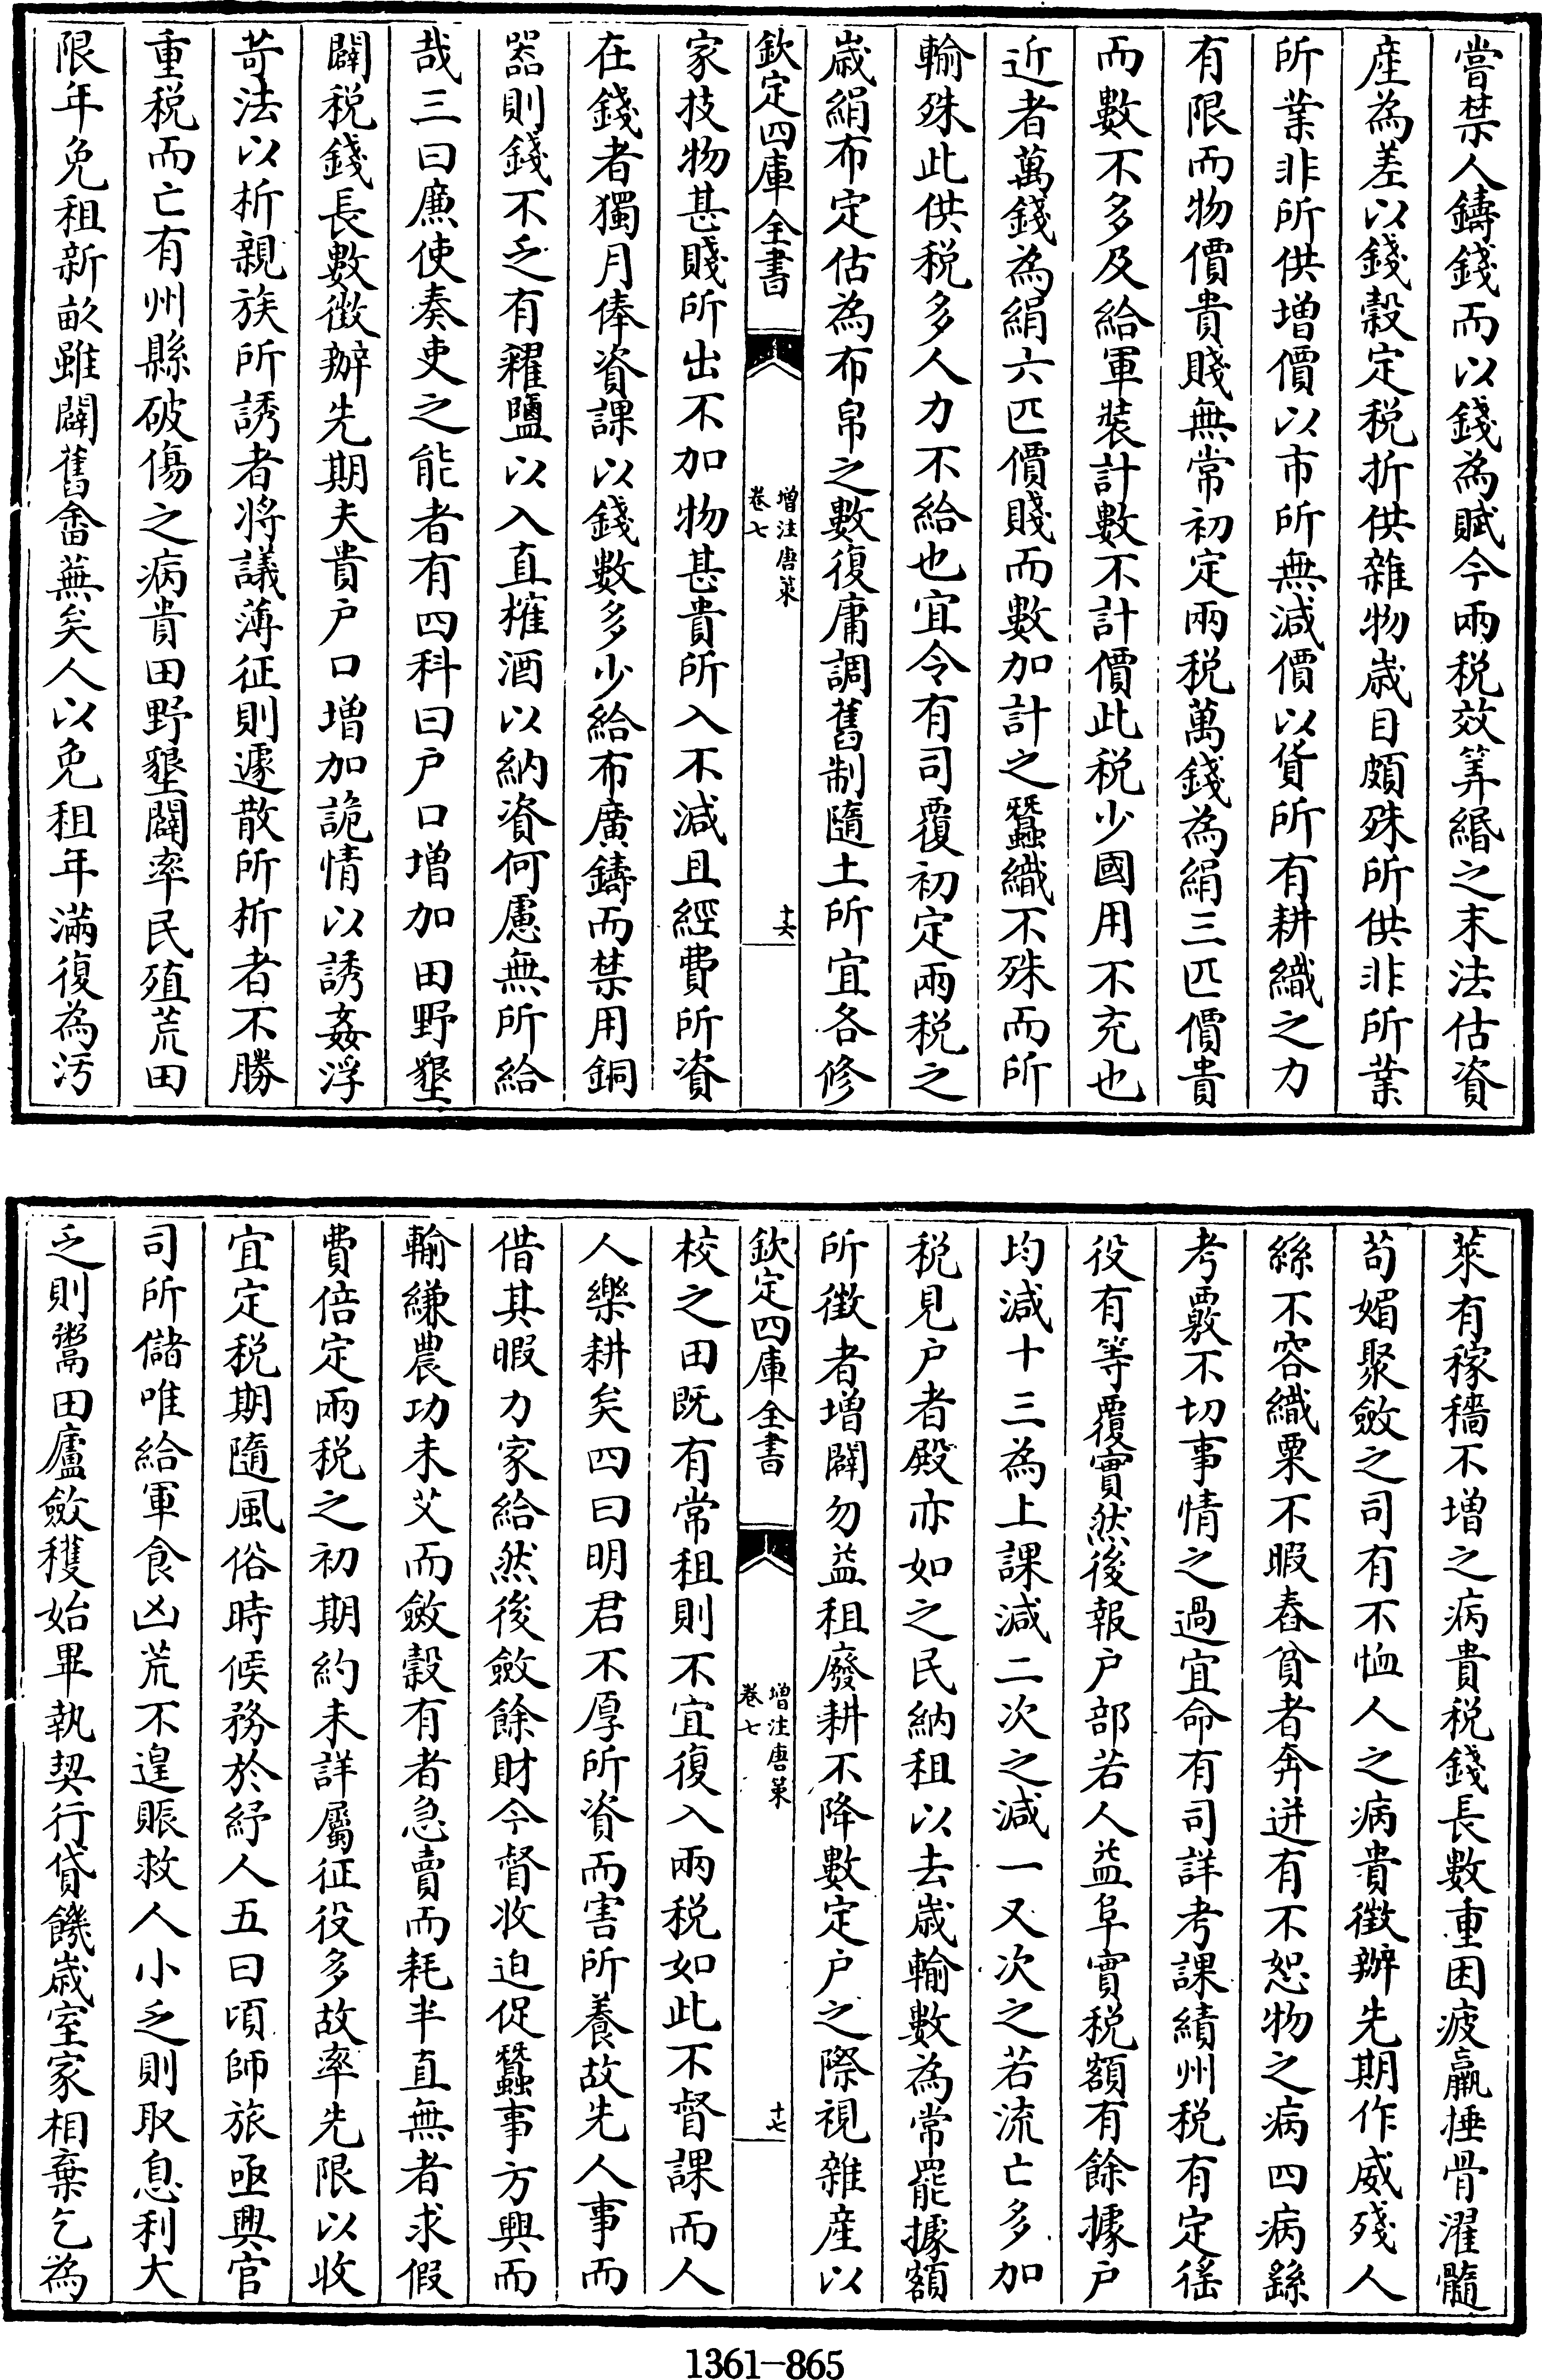 嘗禁人鑄錢而以錢為賦今兩税效筭緡之末法估資
産為差以錢穀定税折供雜物歳目頗殊所供非所業
所業非所供增價以市所無減價以貨所有耕織之力
有限而物價貴賤無常初定兩税萬錢為絹三匹價貴
而數不多及給軍裝計數不計價此税少國用不充也
近者萬錢為絹六匹價賤而數加計之蠶織不殊而所
輸殊此供税多人力不給也宜令有司覆初定兩税之
歳絹布定估為布帛之數復庸調舊制隨土所宜各修
欽定四庫全書
增注唐策
卷七
十六
家技物甚賤所出不加物甚貴所入不減且經費所資
在錢者獨月俸資課以錢數多少給布廣鑄而禁用銅
器則錢不乏有糴鹽以入直榷酒以納資何慮無所給
哉三曰廉使奏吏之能者有四科曰户口增加田野墾
闢税錢長數徴辦先期夫貴户口增加詭情以誘姦浮
苛法以析親族所誘者将議薄征則遽散所析者不勝
重税而亡有州縣破傷之病貴田野墾闢率民殖荒田
限年免租新畝雖闢舊畬蕪矣人以免租年滿復為汚
萊有稼穡不增之病貴税錢長數重困疲羸捶骨濯髓
苟媚聚斂之司有不恤人之病貴徴辦先期作威殘人
絲不容織粟不暇舂貧者奔迸有不恕物之病四病繇
考覈不切事情之過宜命有司詳考課績州税有定徭
役有等覆實然後報户部若人益阜實税額有餘據户
均減十三為上課減二次之減一又次之若流亡多加
税見户者殿亦如之民納租以去歳輸數為常罷據額
所徴者增闢勿益租廢耕不降數定户之際視雜産以
欽定四庫全書
增注唐策
卷七
十七
校之田既有常租則不宜復入兩税如此不督課而人
人樂耕矣四曰明君不厚所資而害所養故先人事而
借其暇力家給然後斂餘財今督收迫促蠶事方興而
輸縑農功未艾而斂穀有者急賣而耗半直無者求假
費倍定兩税之初期約未詳屬征役多故率先限以收
宜定税期隨風俗時候務於紓人五曰頃師旅亟興官
司所儲唯給軍食凶荒不遑賑救人小乏則取息利大
乏則鬻田廬斂穫始畢執契行貸饑歳室家相棄乞為
1361-865